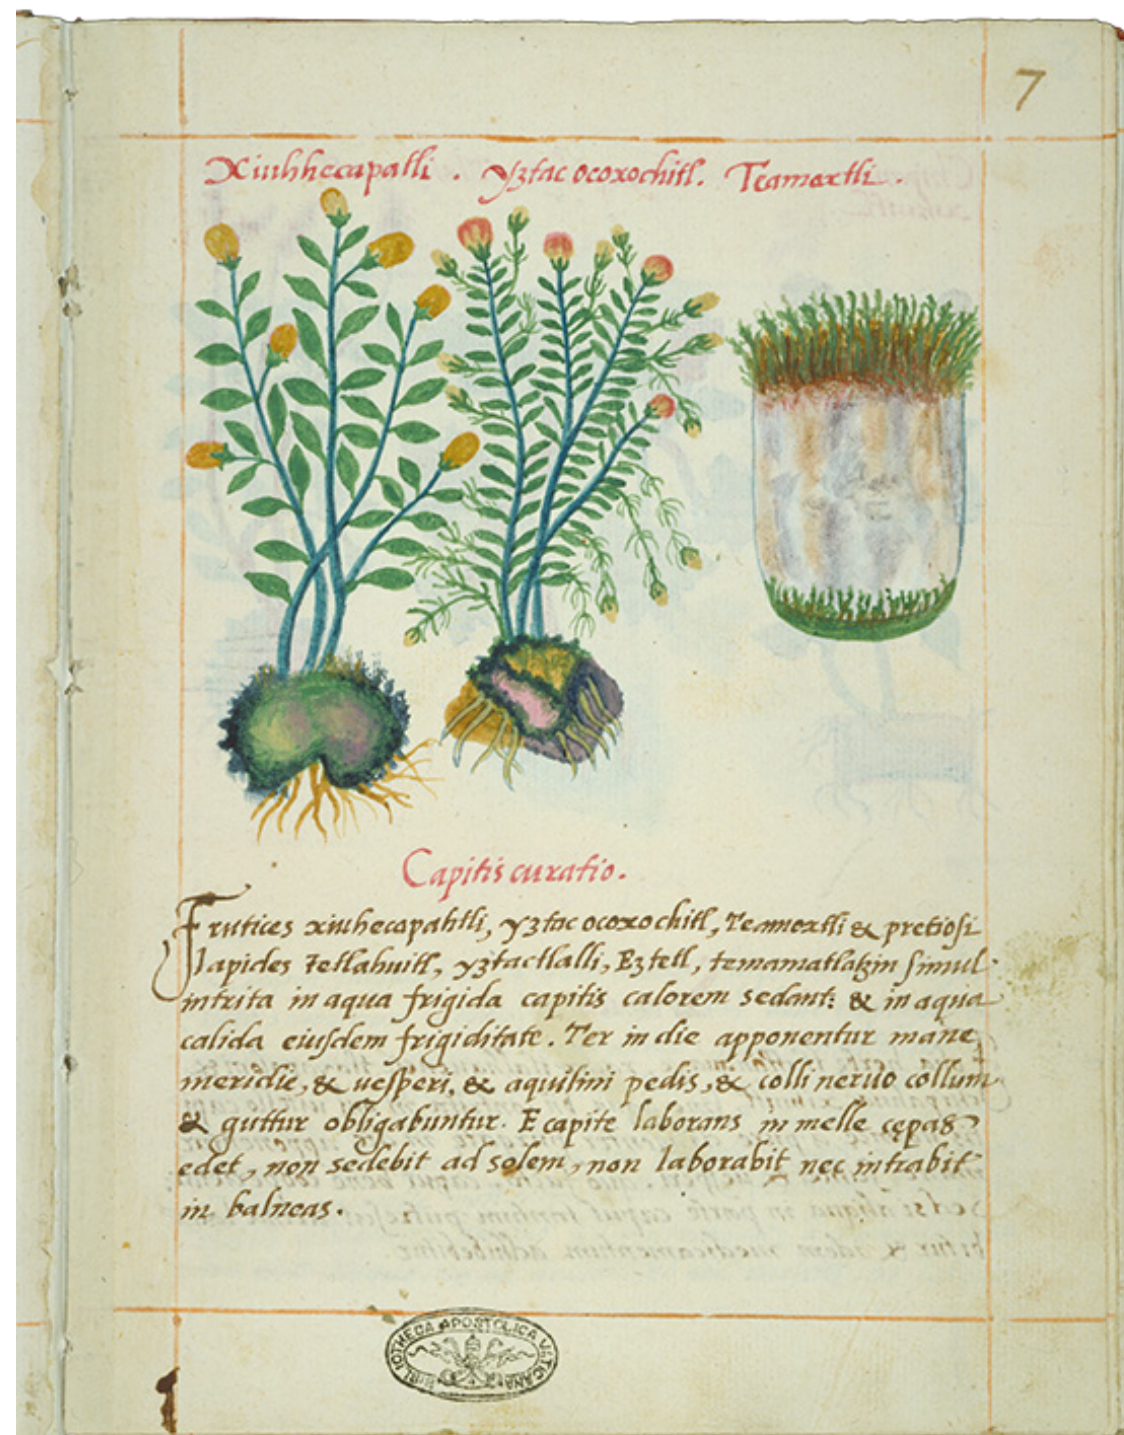 7
Xiuhhecapatli . yztac ocoxochitl. Teamoxtli .
Capitis curatio.
Frutices xiuhecapahtli, yztac ocoxochitl, Teamoxtli & pretiosi
lapides Tetlahuitl, yztactlalli, Eztetl, temamatlatzin simul
intrita in aqua frigida capitis calorem sedant: & in aqua
calida eiusdem frigiditate. Ter in die apponentur mane,
meridie, & uesperi, & aquilini pedis, & colli neruo collum
& guttur obligabuntur. E capite laborans in melle cępas
edet, non sedebit ad solem, non laborabit nec intrabit
in balneas.
BIBLIOTHECA APOSTOLICA VATICANA